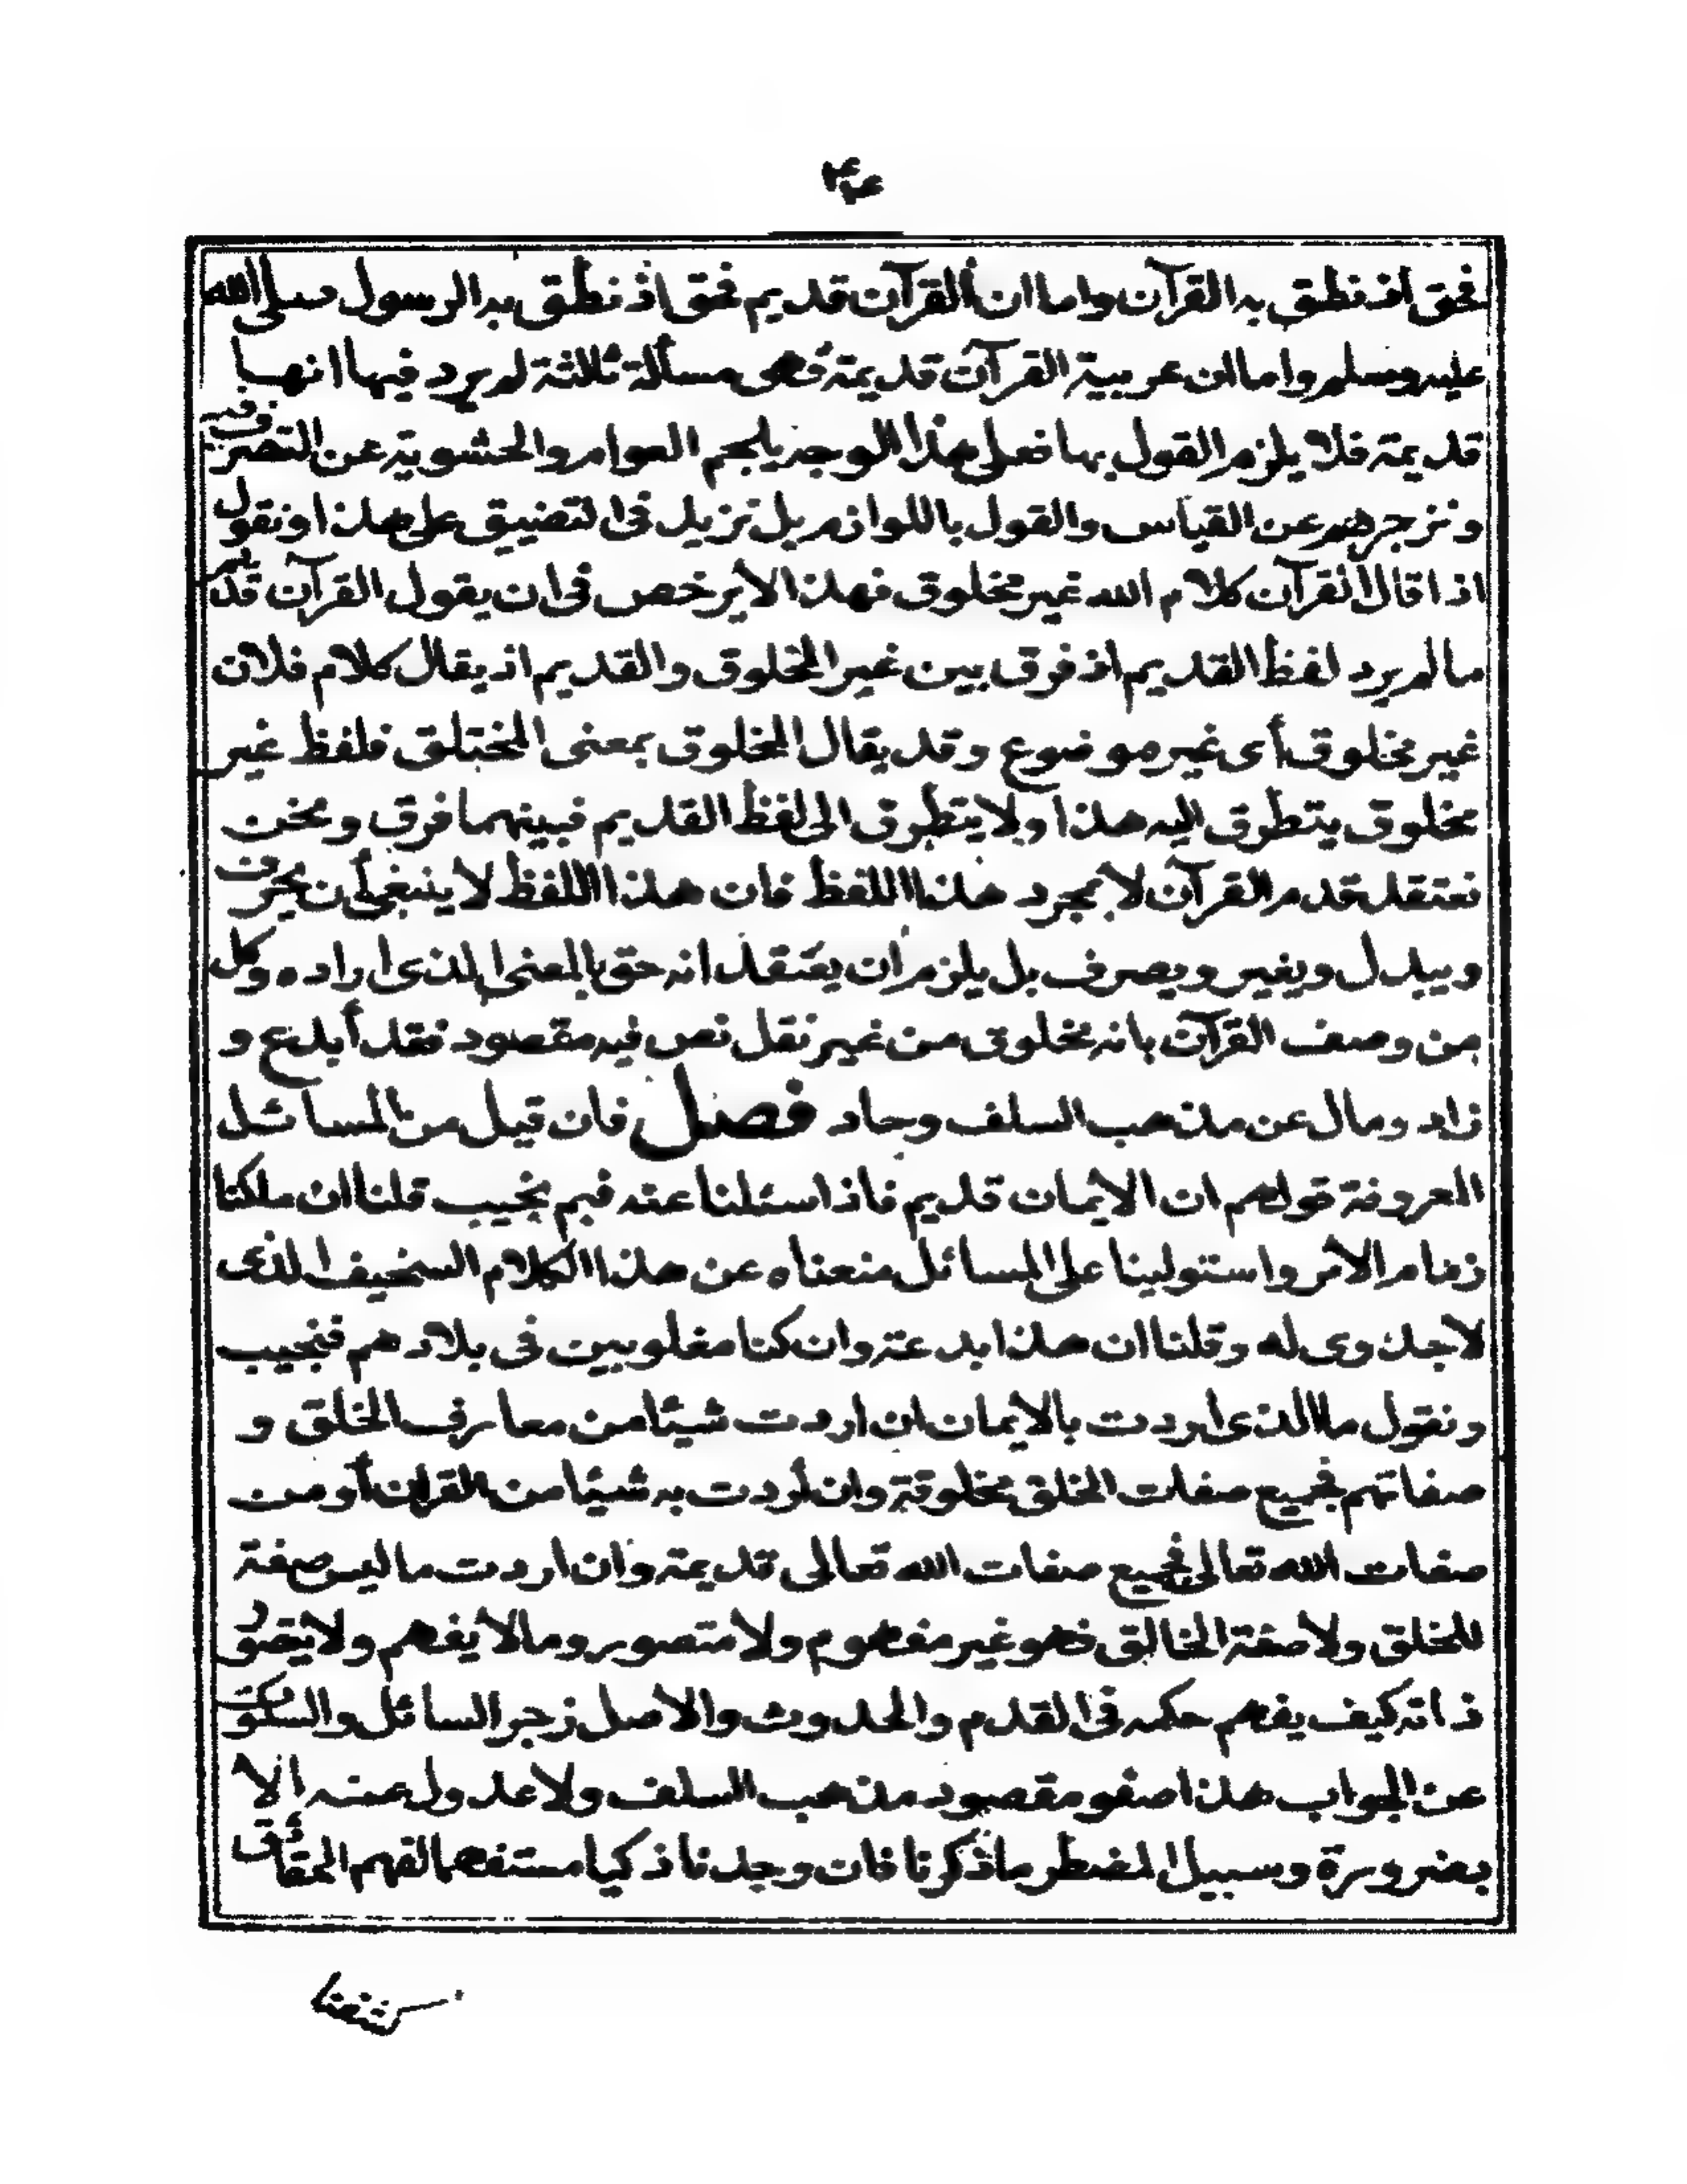 فحق اذ نطق به القرآن واما ان القرآن قديم فحق اذ نطق به الرسول صلى الله
عليه وسلم واما ان عربية القرآن قديمة فهى مسألة ثلاثة لم يرد فيها انها
قديمة فلا يلزم القول بها فعلى هذا الوجه يلجم العوام والحشوية عن التصرف فيه
ونزجرهم عن القياس والقول باللوازم بل نزيل فى التضييق على هذا ونقول
اذا قال القرآن كلام الله غير مخلوق فهذا لا يرخص فى ان يقول القرآن قديم
ما لم يرد لفظ القديم اذ فرق بين غير المخلوق والقديم اذ يقال كلام فلان
غير مخلوق أى غير موضوع وقد يقال المخلوق بمعنى المختلق فلفظ غير
مخلوق يتطرق اليه هذا ولا يتطرق الى لفظ القديم فبينهما فرق ونحن
نعتقد قدم القرآن لا بمجرد هذا اللفظ فان هذا اللفظ لا ينبغى أن يحرف
ويبدل ويغير ويصرف بل يلزم ان يعتقد انه حق بالمعنى الذى اراده وكل
من وصف القرآن بانه مخلوق من غير نقل نص فيه مقصود فقد أبدع و
زاد ومال عن مذهب السلف وحاد فصل فان قيل من المسائل
المعروفة قولهم ان الايمان قديم فاذا سئلنا عنه فبم نجيب قلنا ان ملكنا
زمام الامر واستولينا على المسائل منعناه عن هذا الكلام السخيف الذى
لا جدوى له وقلنا ان هذا بدعة وان كنا مغلوبين فى بلادهم فنجيب
ونقول ما الذى اردت بالايمان ان اردت شيئا من معارف الخلق و
صفاتهم فجميع صفات الخلق مخلوقة وان أردت به شيئا من القران أو من
صفات الله تعالى فجميع صفات الله تعالى قديمة وان اردت ما ليس صفة
للخلق ولا صفة الخالق فهو غير مفهوم ولا متصور وما لا يفهم ولا يتصور
ذاته كيف يفهم حكمه فى القدم والحدوث والاصل زجر السائل والسكوت
عن الجواب هذا صفو مقصود مذهب السلف ولا عدول عنه الا
بضرورة وسبيل المضطر ماذكرنا فان وجدنا ذكيا مستفهما لفهم الحقائق